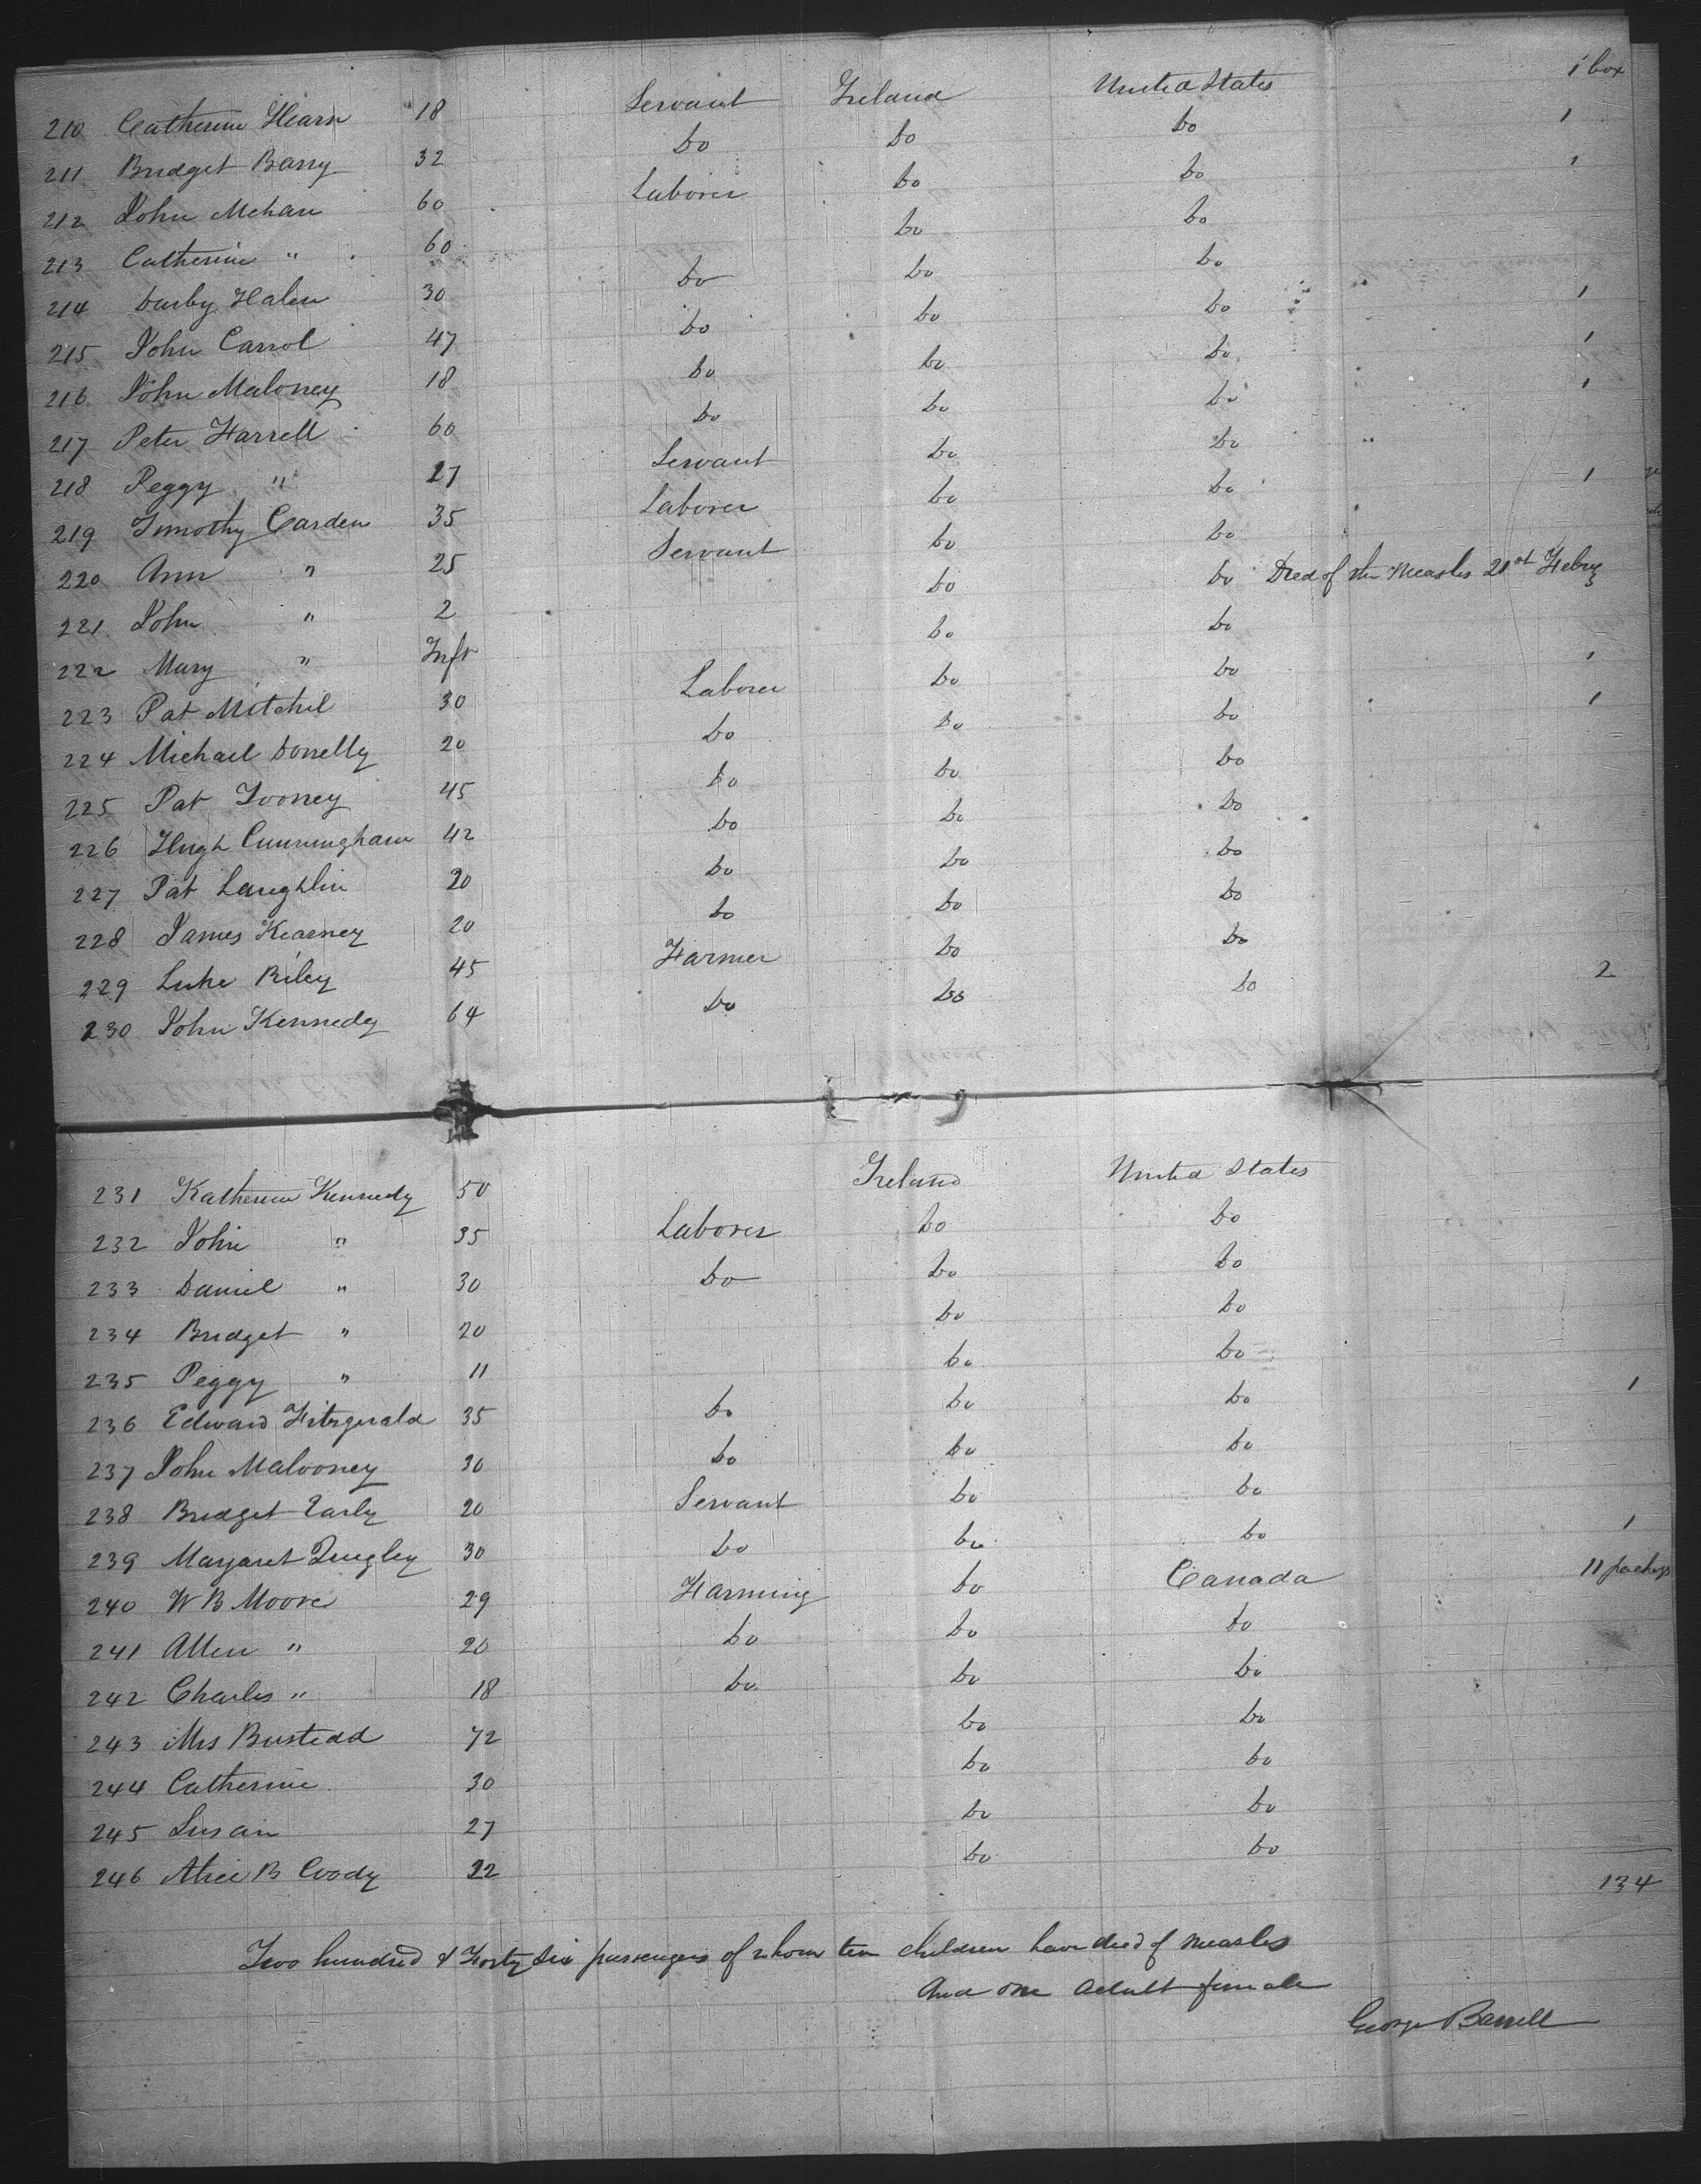 210 Catherine Hearn 18 Servant Ireland United States 1 box
211 Bridget Barry 32 Do Do Do 1
212 John Mehan 60 Laborer Do Do 1
213 Catherine " 60 Do Do
214 Darby Halen 30 Do Do Do
215 John Carrol 47 Do Do Do 1
216 John Maloney 18 Do Do Do 1
217 Peter Harrell 60 Do Do Do 1
218 Peggy " 27 Servant Do Do
219 Timothy Carden 35 Laborer Do Do 1
220 Ann " 25 Servant Do Do
221 John " 2 Do Do Died of the Measles 21st Febry
222 Mary " Inft Do Do
223 Pat Mitchel 30 Laborer Do Do 1
224 Michael Donelly 20 Do Do Do 1
225 Pat Tooney 45 Do Do Do
226 Hugh Cunningham 42 Do Do Do
227 Pat Laughlin 20 Do Do Do
228 James Kearney 20 Do Do Do
229 Luke Riley 45 Farmer Do Do
230 John Kennedy 64 Do Do Do 2
231 Katherine Kennedy 50 Ireland United States
232 John " 35 Laborer Do Do
233 Daniel " 30 Do Do Do
234 Bridget " 20 Do Do
235 Peggy " 11 Do Do
236 Edward Fitzgerald 35 Do Do Do 1
237 John Malooney 30 Do Do Do
238 Bridget Early 20 Servant Do Do
239 Margaret Quigley 30 Do Do Do 1
240 W B Moore 29 Farming Do Canada 11 packegs
241 Allen " 20 Do Do Do
242 Charles " 18 Do Do Do
243 Mrs Bustedd 72 Do Do
244 Catherine 30 Do Do
245 Susan 27 Do Do
246 Alice B Coody 22 Do Do
134
Two hundred & Forty Six passengers of whom ten children have died of Measles
And one adult female
George Barrell